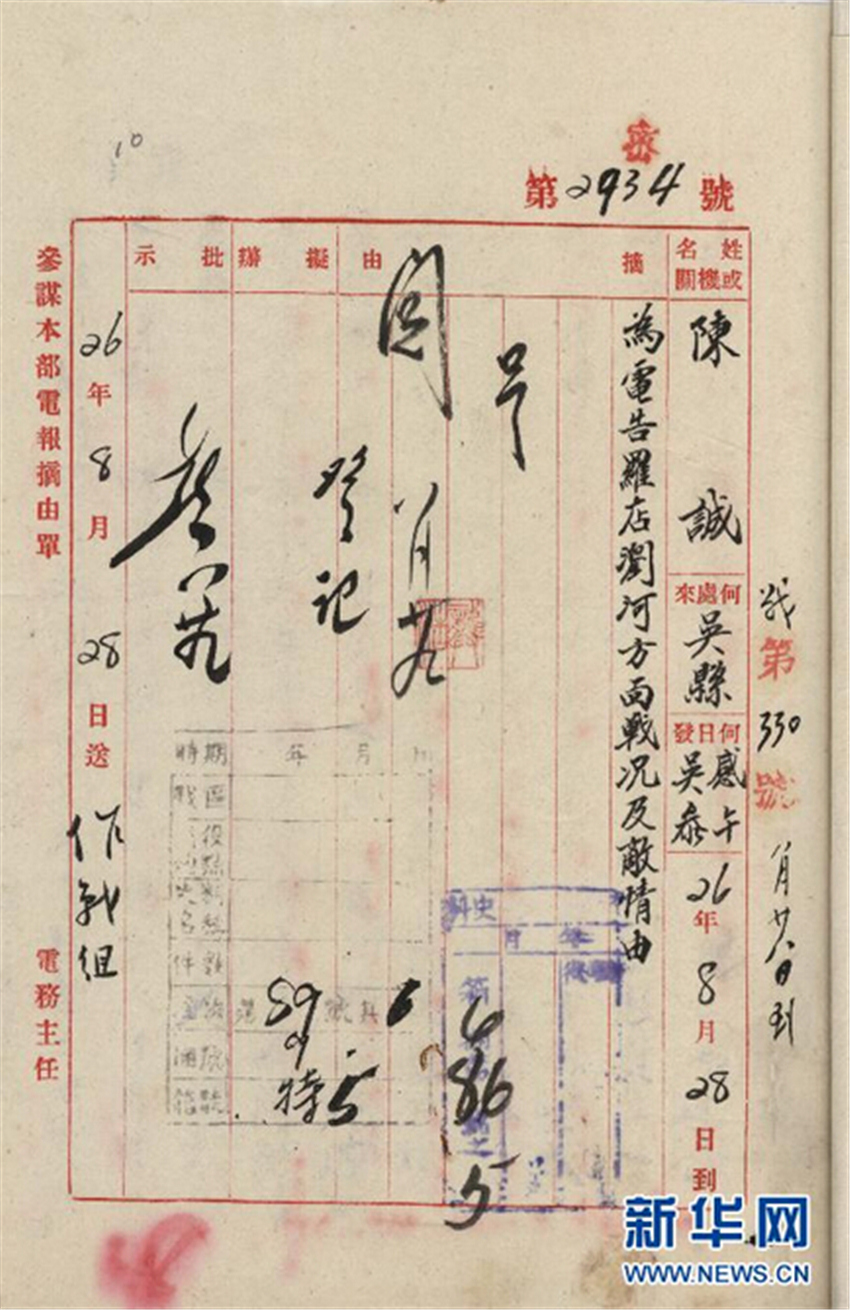 10
密
第2934號
戰第330號 八月廿八日到
姓名或機關
陳誠
何處來
吳縣
何日發
感午
吳叅
26年8月28日到
摘由
為電告羅店瀏河方面戰况及敵情由
閱
八月廿九
擬辦
登記
批示
26年8月28日送作戰組
參謀本部電報摘由單
電務主任
時期 年 月 日
戰區
史料
年 月
6
86
5
59
特5
6
新华网
WWW.NEWS.CN